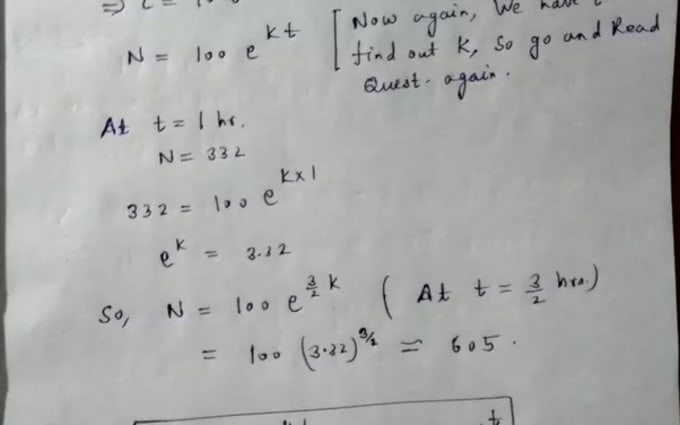 N = 100 e^{kt} [Now again, We have
find out K, So go and Read
Quest. again.
At t = 1 hr.
N = 332
332 = 100 e^{K×1}
e^{k} = 3.32
So, N = 100 e^{\frac{3}{2} k} (At t = \frac{3}{2} hrs.)
= 100 (3.32)^{3/2} ≃ 605.